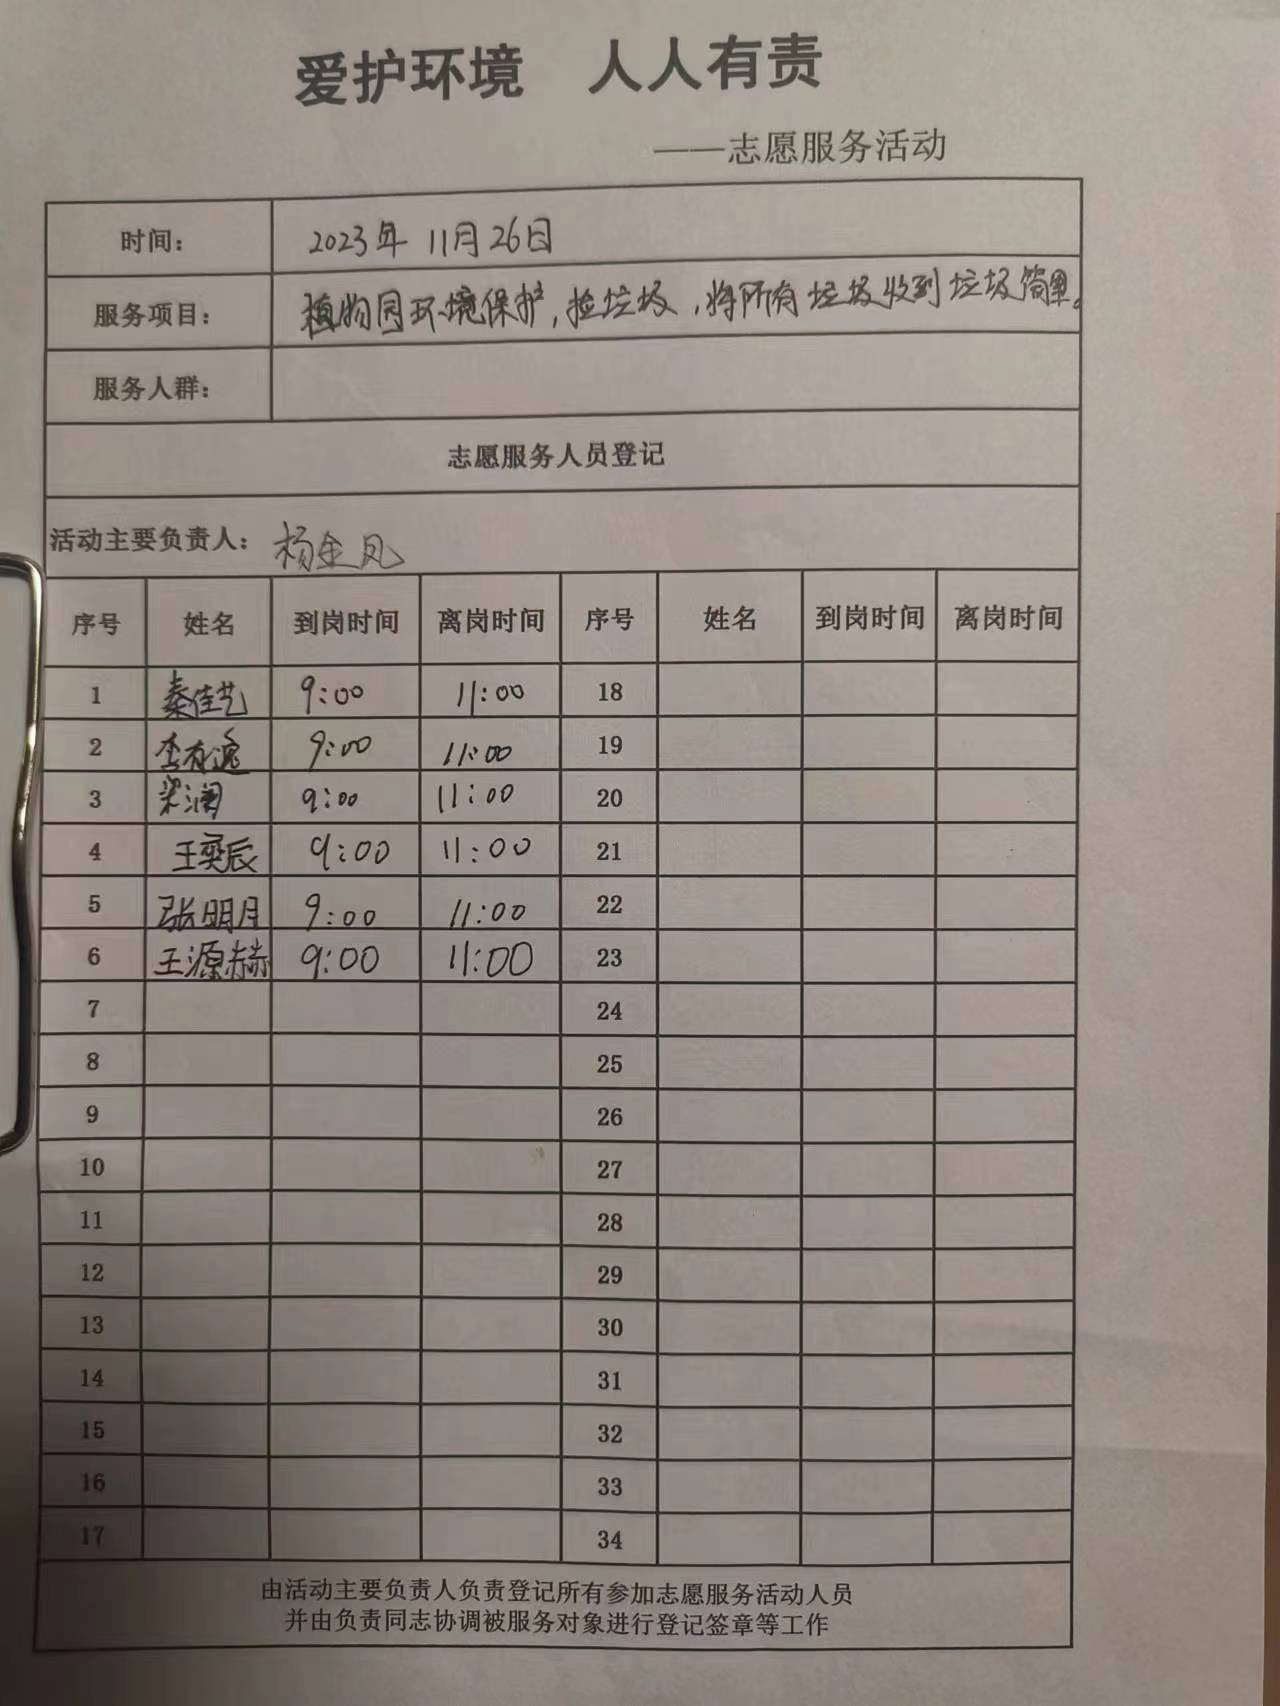 爱护环境 人人有责
——志愿服务活动
时间： 2023年 11月26日
服务项目： 植物园环境保护，捡垃圾，将所有垃圾收到垃圾筒里。
服务人群：
志愿服务人员登记
活动主要负责人： 杨金凤
序号 姓名 到岗时间 离岗时间 序号 姓名 到岗时间 离岗时间
1 秦佳艺 9:00 11:00 18
2 李有逸 9:00 11:00 19
3 梁润 9:00 11:00 20
4 王奕辰 9:00 11:00 21
5 张明月 9:00 11:00 22
6 王源赫 9:00 11:00 23
7 24
8 25
9 26
10 27
11 28
12 29
13 30
14 31
15 32
16 33
17 34
由活动主要负责人负责登记所有参加志愿服务活动人员
并由负责同志协调被服务对象进行登记签章等工作